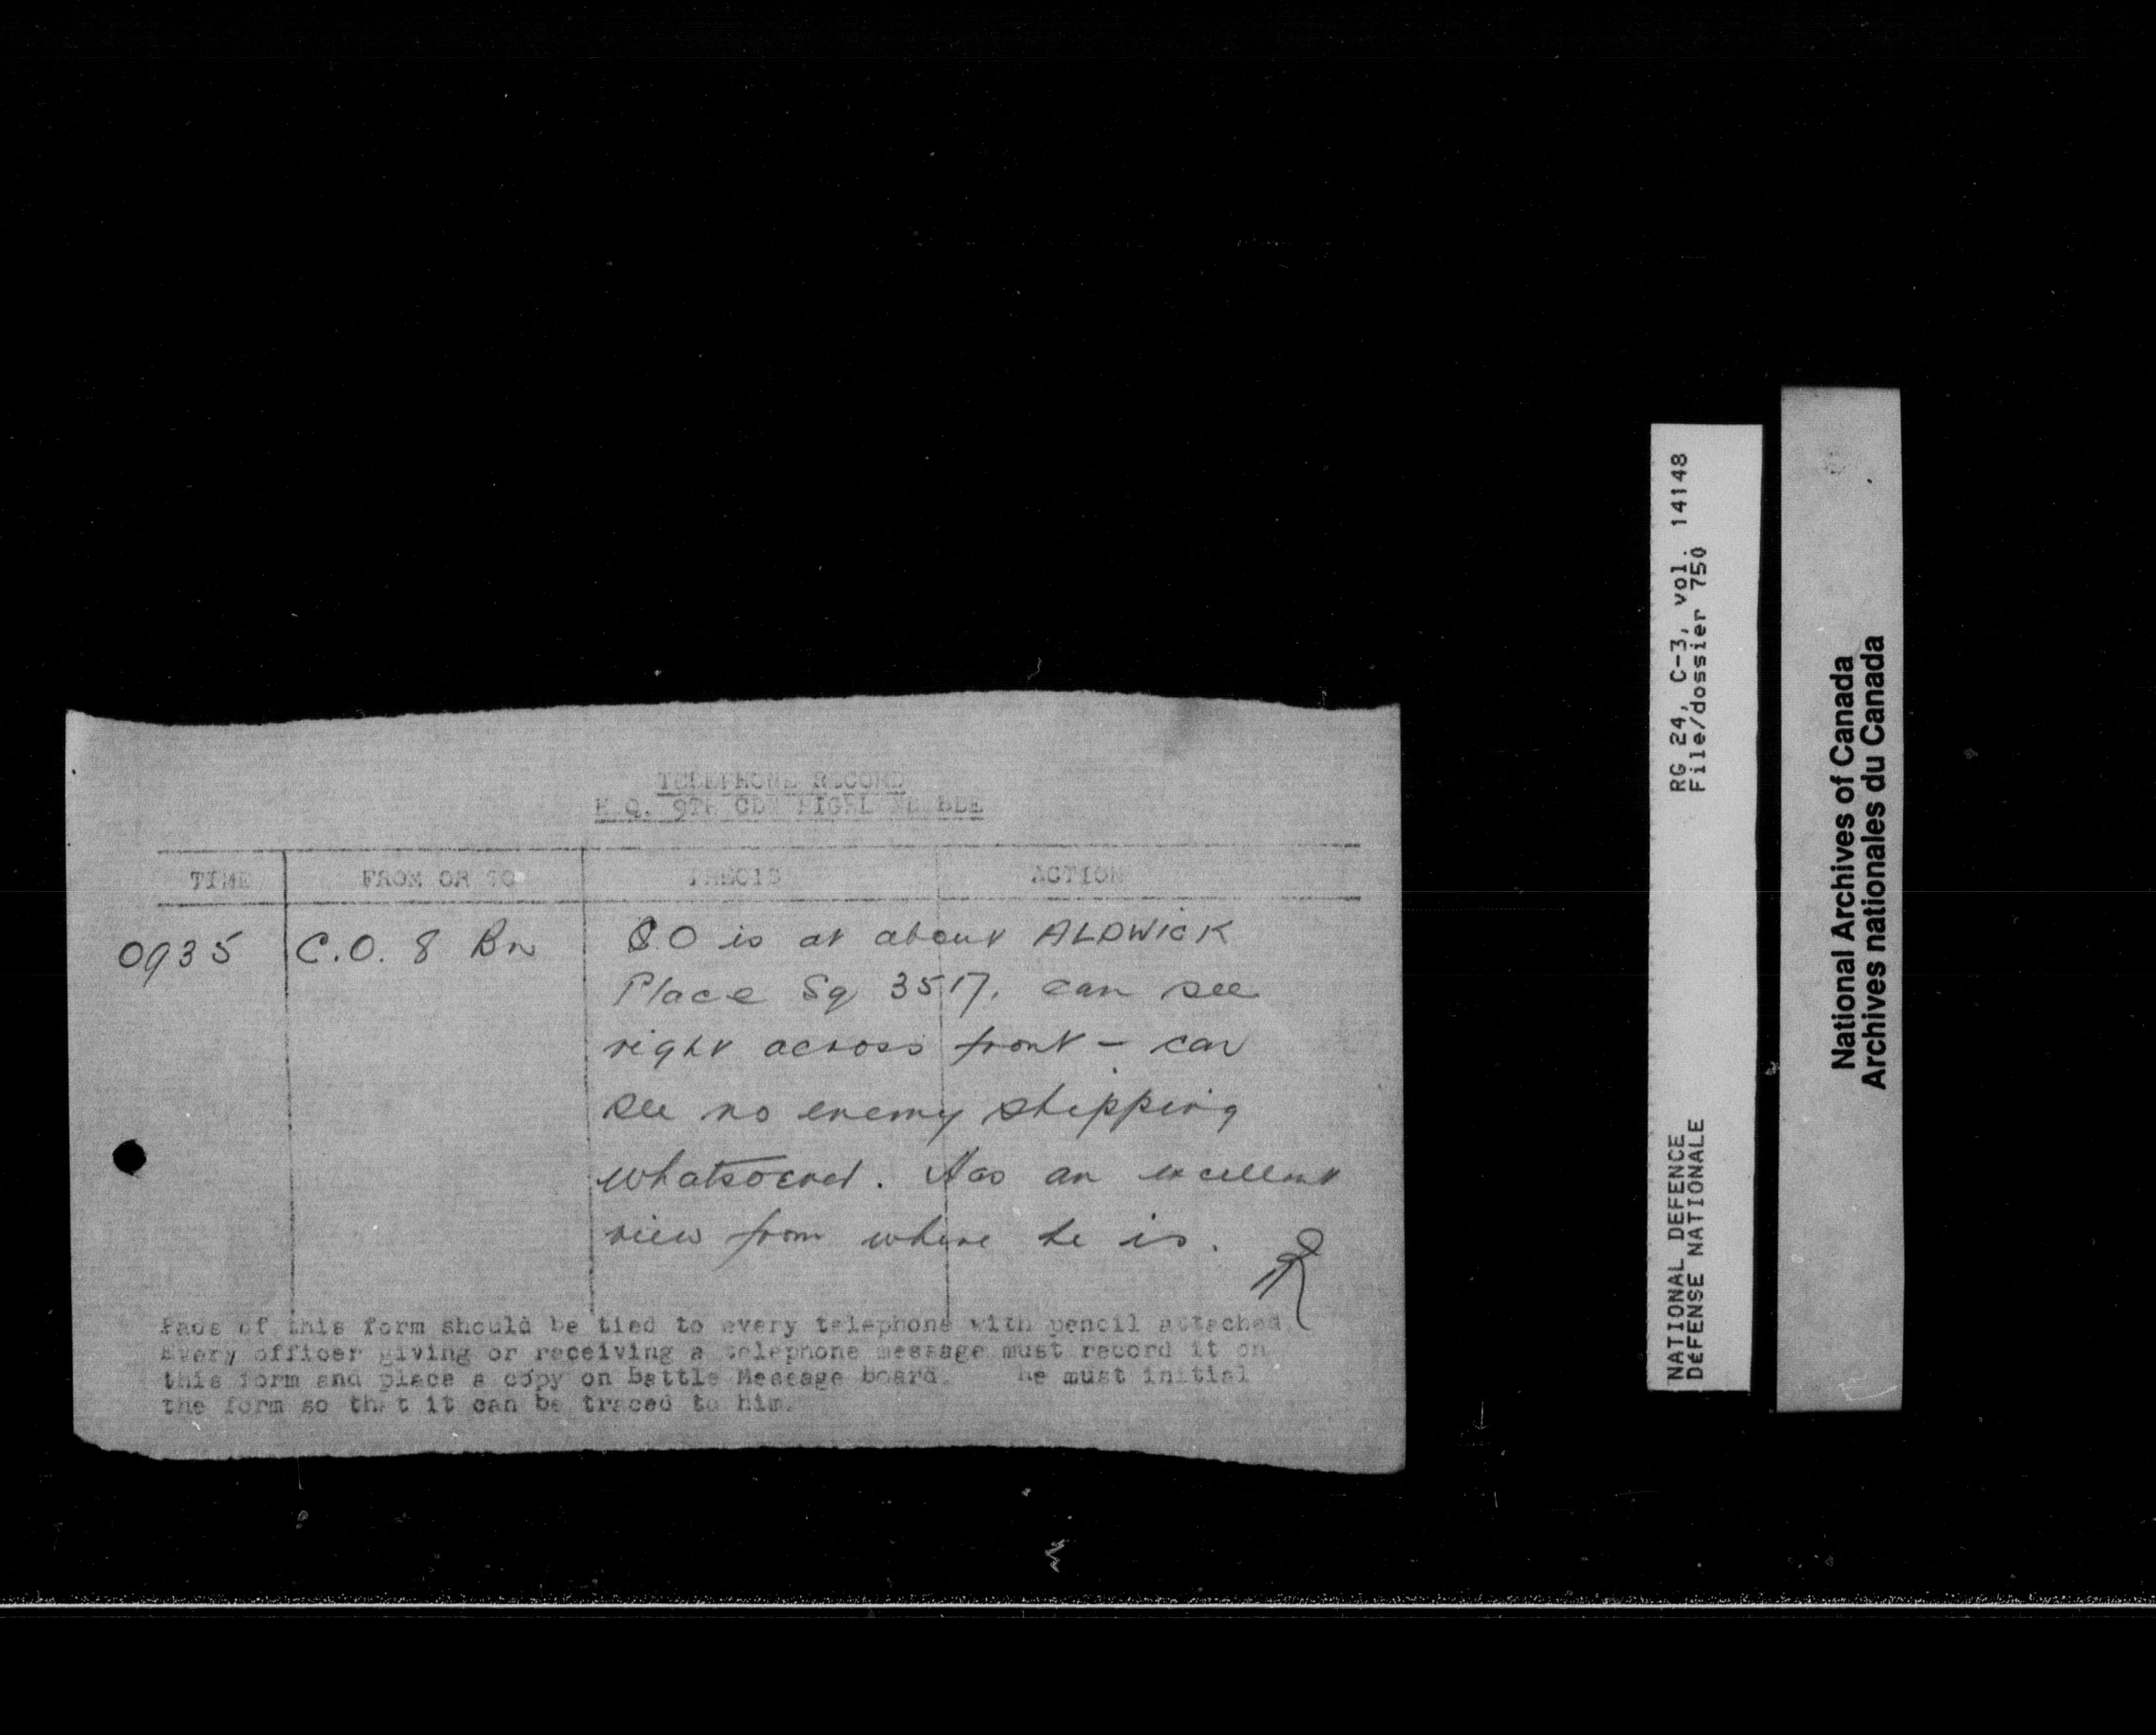 TELEPHONE RECORD
H.Q. 9TH CDN INF BDE
TIME FROM OR TO PRECIS ACTION
0935 C.O. 8 Bn C.O is at about ALDWICK
Place Sq 3517. can see
right across front — can
see no enemy shipping
whatsoever. Has an excellent
view from where he is.
Pads of this form should be tied to every telephone with pencil attached.
Every officer giving or receiving a telephone message must record it on
this form and place a copy on Battle Message board. He must initial
the form so that it can be traced to him.
RG 24, C-3, vol. 14148
File/dossier 750
NATIONAL DEFENCE
DÉFENSE NATIONALE
National Archives of Canada
Archives nationales du Canada